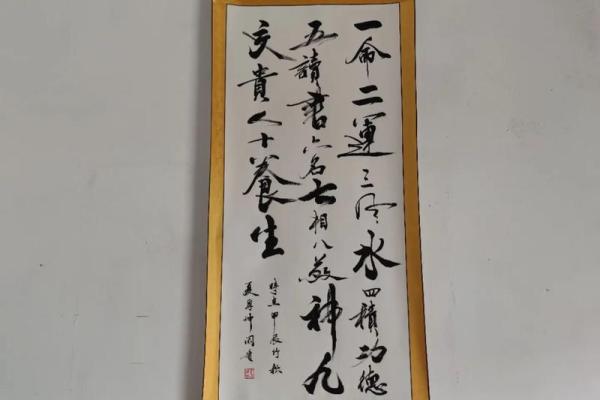 一命二運三风水四積功德
五讀書六名七相八敬神九
交貴人十養生
甲辰竹秋